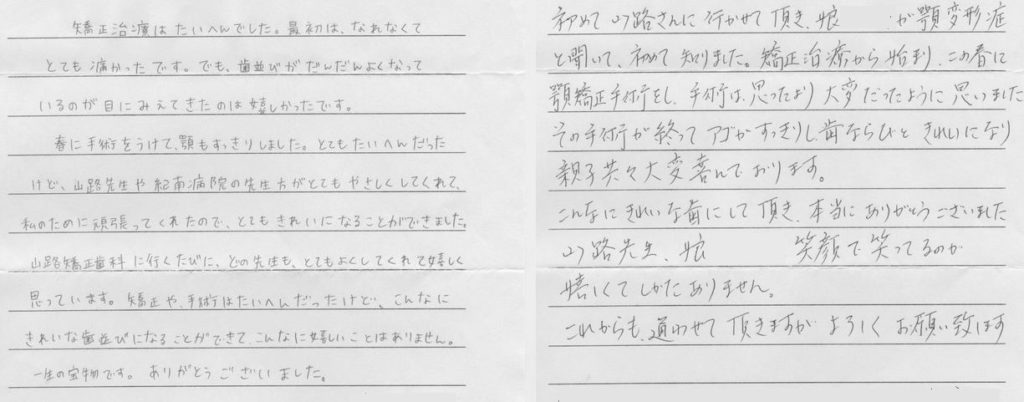 矯正治療はたいへんでした。最初は、なれなくて
とても痛かったです。でも、歯並びがだんだんよくなって
いるのが目にみえてきたのは嬉しかったです。
春に手術をうけて、顎もすっきりしました。とてもたいへんだった
けど、山路先生や紀南病院の先生方がとてもやさしくしてくれて、
私のために頑張ってくれたので、とてもきれいになることができました。
山路矯正歯科に行くたびに、どの先生も、とてもよくしてくれて嬉しく
思っています。矯正や、手術はたいへんだったけど、こんなに
きれいな歯並びになることができて、こんなに嬉しいことはありません。
一生の宝物です。ありがとうございました。
初めて山路さんに行かせて頂き、娘 が顎変形症
と聞いて、初めて知りました。矯正治療から始まり、この春に
顎矯正手術をし、手術は、思ったより大変だったように思いました
その手術が終ってアゴがすっきりし、歯ならびもきれいになり
親子共々大変喜んでおります。
こんなにきれいな歯にして頂き、本当にありがとうございました
山路先生、娘 笑顔で笑ってるのが
嬉しくてしかたありません。
これからも、通わせて頂きますが よろしくお願い致します